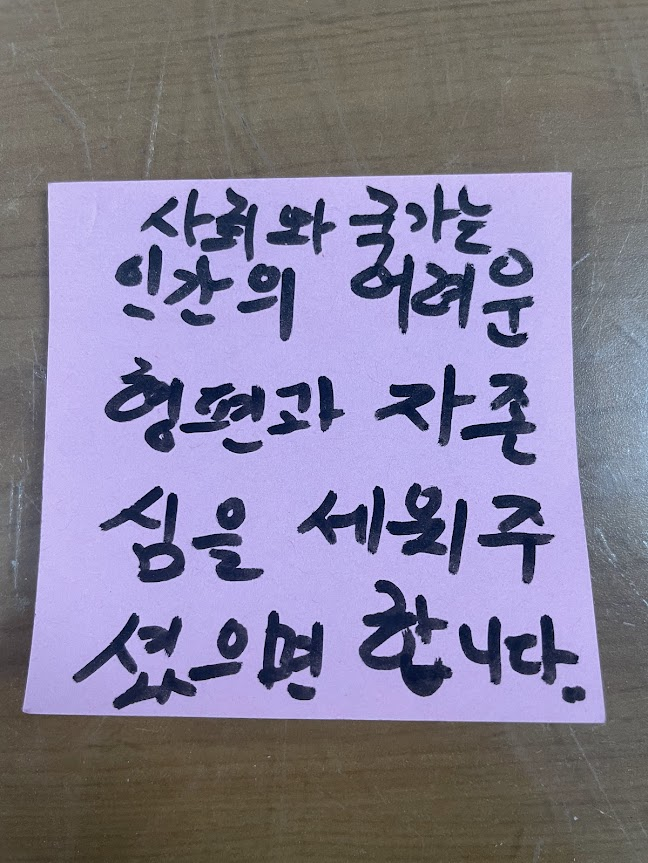 사회와 국가는
인간의 어려운
형편과 자존
심을 세워주
셨으면 합니다.